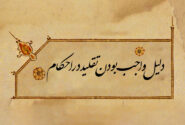 دلیل واجب بودن تقلید در احکام